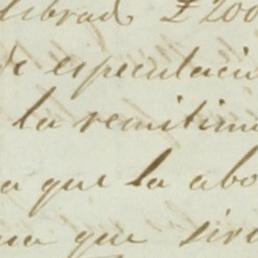 librado £200
de especulacio
la remitimo
a que la abo
na que sirv